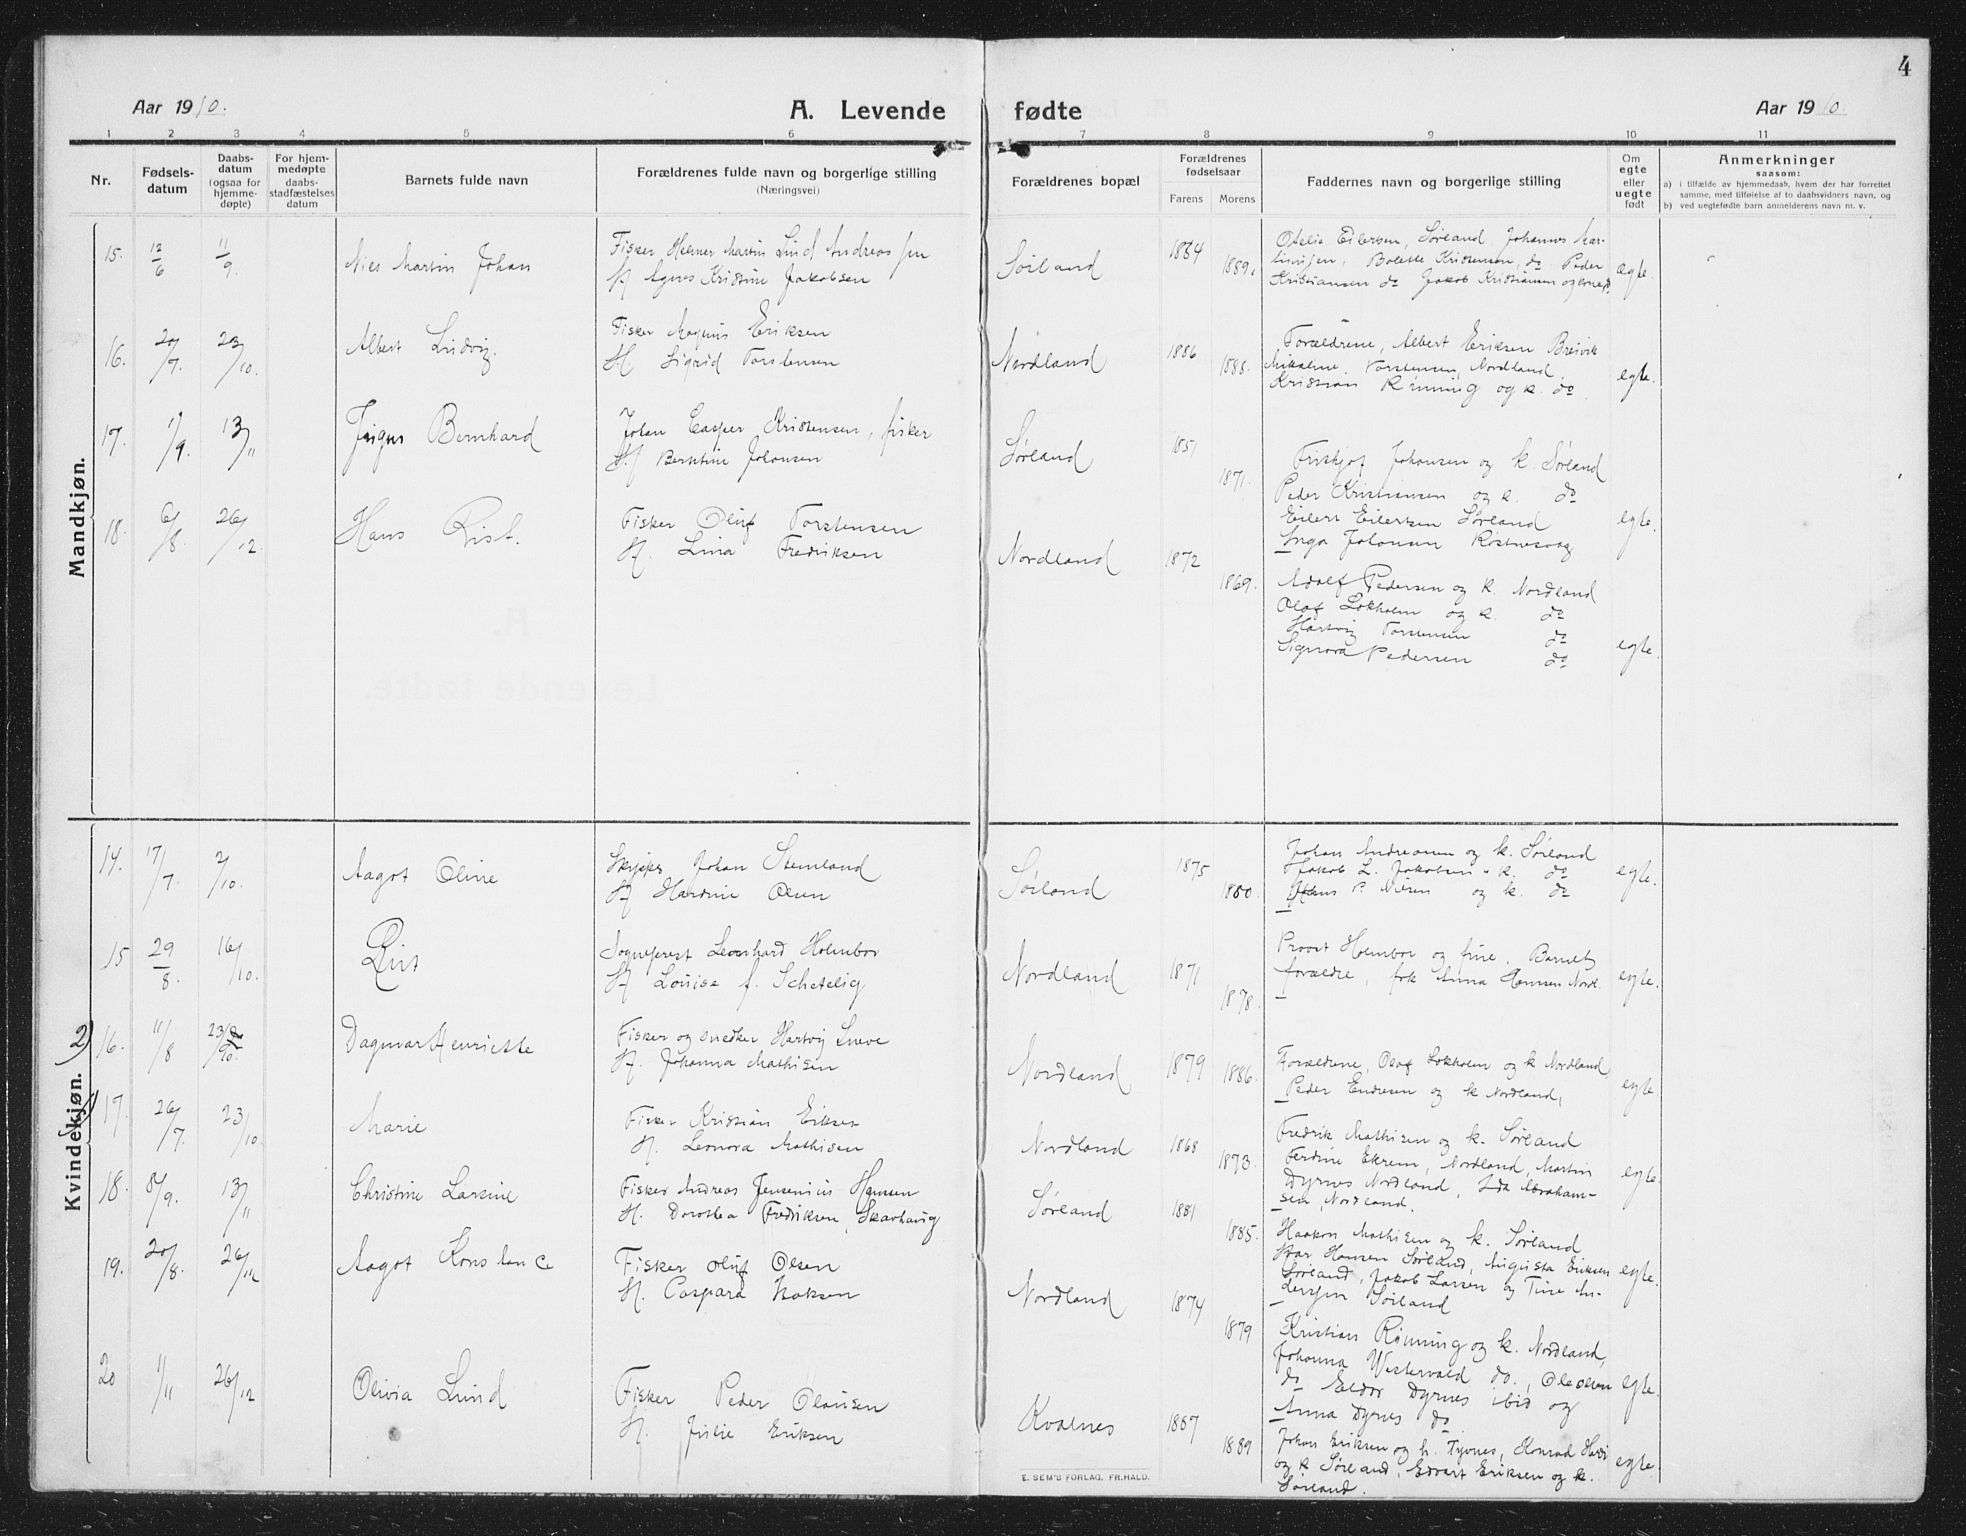 4
Aar 1910.
A. Levende fødte
Aar 1910.
1 2 3 4 5 6 7 8 9 10 11
Nr.
Fødsels-
datum
Daabs-
datum
(ogsaa for
hjemme-
døpte)
For hjem-
medøpte
daabs-
stadfæstelses
datum
Barnets fulde navn
Forældrenes fulde navn og borgerlige stilling
(Næringsvei)
Forældrenes bopæl
Forældrenes
fødselsaar
Farens Morens
Faddernes navn og borgerlige stilling
Om
egte
eller
uegte
født
Anmerkninger
saasom:
a) i tilfælde av hjemmedaab, hvem der har forrettet
samme, med tilføielse af to daabsvidners navn, og
b) ved uegtefødte barn anmelderens navn m. v.
Mandkjøn.
15. 12/6 11/9. Martin Johan
Fisker Helmer Martin Lind Andreassen
H Agnes Kristine Jakobsen
Sørland 1884 1889.
Otelie Eilersen, Sørland Johannes Mar-
Bolette Kristensen, do Peder
Kristiansen do Jakob Kristiansen
egte.
16. 20/7. 23/10. Albert Ludvig.
Fisker Magnus Eriksen
H Sigrid Torstensen
Nordland 1886 1888.
Forældrene, Albert Eriksen Breivik
Torstensen, Nordland
Kristian Rønning og k. do
egte.
17. 1/9. 13/11 Bernhard
Johan Casper Kristensen, fisker
H Berntine Johansen
Sørland 1851 1871.
Frithjof Johansen og k. Sørland
Peder Kristiansen og k. do
Eilert Eilertsen Sørland
Inga Johansen
egte.
18. 6/8. 26/12. Hans Rist.
Fisker Oluf Torstensen
H. Lina Fredriksen
Nordland 1872 1869.
Adolf Pedersen og k. Nordland
Olaf Lokholm og k. do
Hartvig Torstensen do
Signora Pedersen do
egte.
Kvindekjøn.
14. 17/7. 2/10. Aagot Oline
Johan Stemland
H Hardine Olsen
Sørland 1875 1880.
Johan Andreasen og k. Sørland
Jakob L. Jakobsen " k. do
Hans P. Nilsen og k. do
egte.
15 29/8. 16/10.
Sogneprest Leonhard Holmboe
H Louise f. Schetelig
Nordland 1871 1878.
Provst Holmboe og frue, Barnets
forældre, frk Anna Hansen Nordl.
egte.
2)
16. 11/8 23/10 Dagmar Henriette
Fisker og snedker Hartvig
H. Johanna Mathisen
Nordland 1879 1886.
Forældrene, Olaf Lokholm og k Nordland
Peder Endresen og k Nordland,
egte
17. 26/7. 23/10. Marie
Fisker Kristian Eriksen
H. Leonora Mathisen
Nordland 1868 1873.
Fredrik Mathisen og k. Sørland
Ferdine Ekrem, Nordland, Martin
Dyrnes Nordland, Ida Abraham-
sen, Nordland.
egte
18. 8/9. 13/11 Christine Larsine
Fisker Andreas Jensenius Hansen
H. Dorothea Fredriksen, Skarhaug
Sørland 1881 1885.
Haakon Mathisen og k. Sørland
Hansen Sørland, Augusta Eriksen
Sørland, Jakob Larsen og Tine An-
dersen Sørland
egte.
19. 20/8. 26/12 Aagot Konstance
Fisker Oluf Olsen
H. Caspara Isaksen
Nordland 1874 1879
Kristian Rønning og k. Nordland,
Johanna Westervold do., Ole Olsen
do Eldor Dyrnes ibid og
Anna Dyrnes do
egte.
20 1/11 26/12 Olivia Lund
Fisker Peder Olausen
H. Julie Eriksen
Kvalnes 1887 1889
Johan Eriksen og k. Konrad
og k Sørland, Edvart Eriksen og k.
Sørland.
egte.
E. SEM'S FORLAG. FR.HALD.